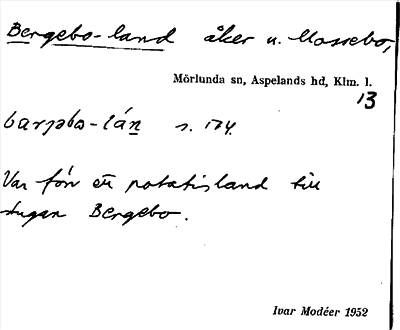 Bergebo-land åker u. Mossebo,
Mörlunda sn, Aspelands hd, Klm. l.
13
barjəbo-lán s. 174.
Var förr ett potatisland till
stugan Bergebo.
Ivar Modéer 1952